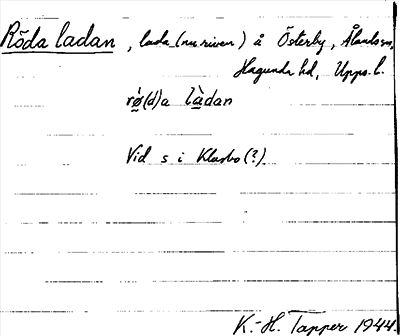 Röda ladan, lada (nu riven) å Österby, Ålands sn,
Hagunda hd, Upps. l.
rö́(d)a làdan
Vid s i Klasbo (?)
K.-H. Tapper 1944.